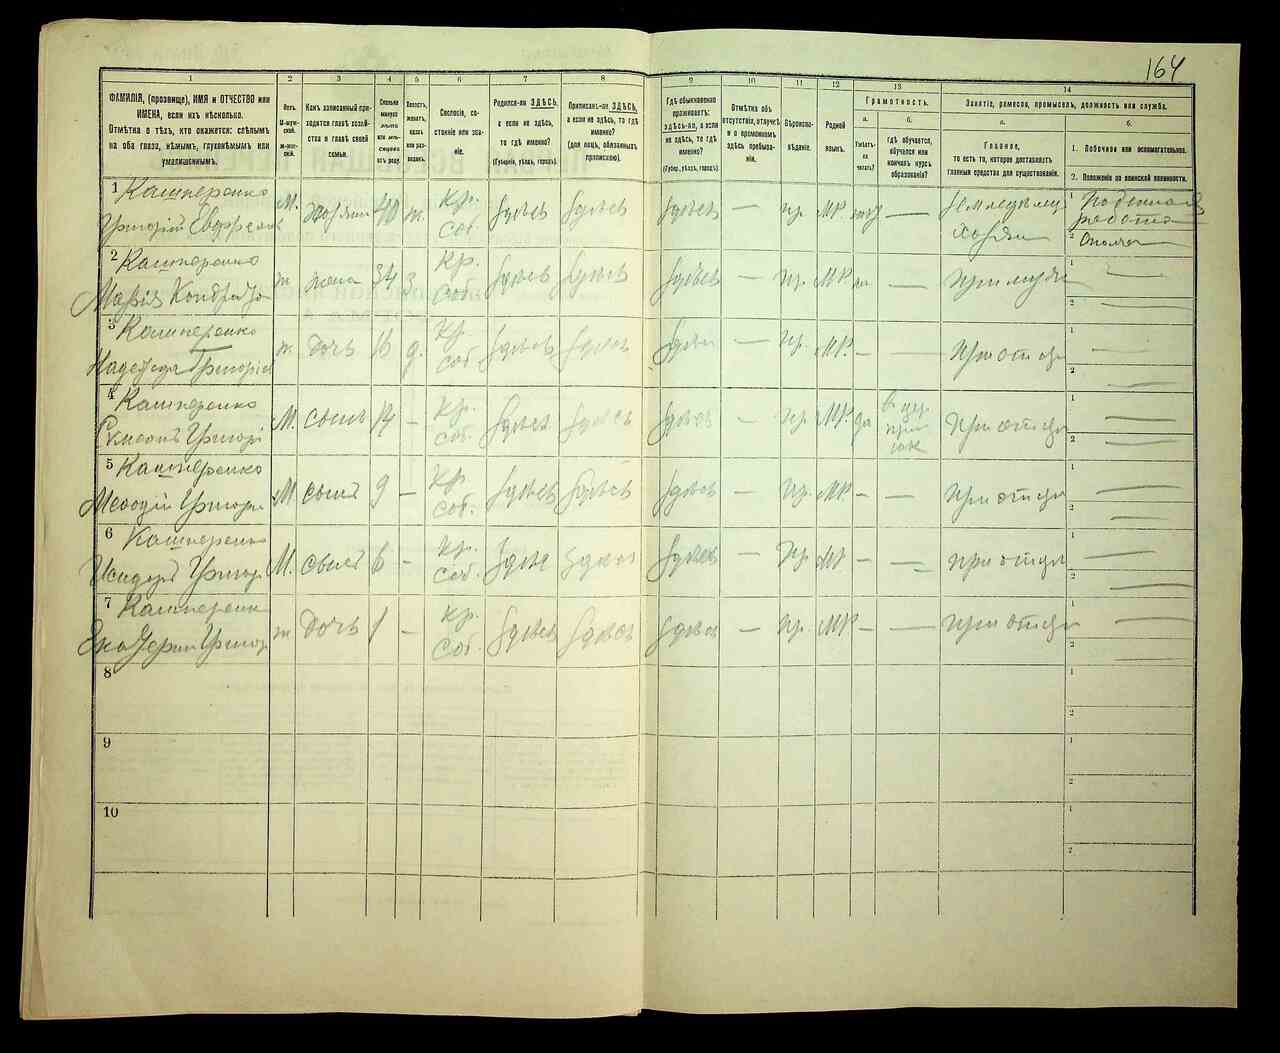 164
1
2
3
4
5
6
7
8
9
10
11
12
13
14
ФАМИЛІЯ, (прозвище), ИМЯ и ОТЧЕСТВО или
ИМЕНА, если ихъ нѣсколько.
Отмѣтка о тѣхъ, кто окажется: слѣпымъ
на оба глаза, нѣмымъ, глухонѣмымъ или
умалишеннымъ.
Полъ
М-муж-
ской.
Ж-жен-
скій.
Какъ записанный при-
ходится главѣ хозяй-
ства и главѣ своей
семьи.
Сколько
минуло
лѣтъ
или мѣ-
сяцевъ
отъ роду.
Холостъ,
женатъ,
вдовъ
или раз-
веденъ.
Сословіе, со-
стояніе или зва-
ніе.
Родился-ли ЗДѢСЬ,
а если не здѣсь,
то гдѣ именно?
(Губернія, уѣздъ, городъ).
Приписанъ-ли ЗДѢСЬ,
а если не здѣсь, то гдѣ
именно?
(для лицъ, обязанныхъ
припискою).
Гдѣ обыкновенно
проживаетъ:
здѣсь-ли, а если
не здѣсь, то гдѣ
именно?
(Губер., уѣздъ, городъ).
Отмѣтка объ
отсутствіи, отлучкѣ
и о временномъ
здѣсь пребыва-
ніи.
Вѣроиспо-
вѣданіе.
Родной
языкъ.
Грамотность.
а.
Умѣетъ-
ли
читать?
б.
гдѣ обучается,
обучался или
кончилъ курсъ
образованія?
Занятіе, ремесло, промыселъ, должность или служба.
а.
Главное,
то есть то, которое доставляетъ
главныя средства для существованія.
б.
1. Побочное или вспомогательное.
2. Положеніе по воинской повинности.
1 Кашперенко М. хозяинъ 40 ж. Кр. здѣсь здѣсь здѣсь — пр. МР. — 1
Григорій соб. хозяин 2
2 Кашперенко ж жена 34 з Кр. здѣсь здѣсь здѣсь — пр. МР. при мужѣ 1 —
Марія соб. 2 —
3 Кашперенко ж. дочь 16 д. Кр. здѣсь здѣсь здѣсь — пр. МР. — при отцѣ 1 —
Надежда Григорів соб. 2 —
4 Кашперенко М. сынъ 14 — Кр. здѣсь здѣсь здѣсь — пр. МР. да в цер. при отцѣ 1 —
Симеонъ Григорі соб. 2 —
5 Кашперенко М. сынъ 9 — Кр. здѣсь здѣсь здѣсь — пр. МР — — при отцѣ 1 —
Меѳодій Григорі соб. 2 —
6 Кашперенко М. сынъ 6 — Кр. здѣсь здѣсь здѣсь — пр. МР. — — при отцѣ 1 —
Исидоръ Григор соб. 2 —
7 Кашперенк ж. дочь 1 — Кр. здѣсь здѣсь здѣсь — пр. МР — — при отцѣ 1 —
Екатерин Григор соб. 2 —
8 1
2
9 1
2
10 1
2